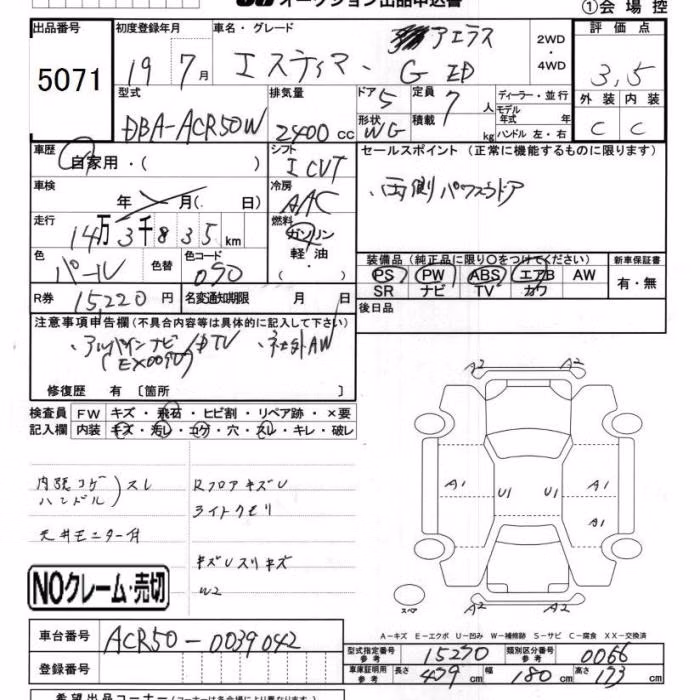 オークション出品申込書 ①会場控
出品番号 初度登録年月 車名・グレード 2WD・4WD 評価点
5071 19年7月 エスティマ・アエラス G 3.5
外装 内装
C C
型式 排気量 ドア 5 定員 7人 ディーラー・並行
DBA-ACR50W 2400cc 形状 WG 積載 kg モデル年式 年
ハンドル 左・右
車歴 シフト セールスポイント (正常に機能するものに限ります)
自家用・( ) ICVT ・両側パワースラドア
車検 年 月( 日) 冷房 AAC
走行 14万3千835km 燃料 ガソリン
軽油・( )
色 パール 色替 色コード 090
装備品 (純正品に限り○をつけてください) 新車保証書
PS PW ABS エアB AW 有・無
SR ナビ TV カワ
R券 15,220円 名変通知期限 月 日 後日品
注意事項申告欄 (不具合内容等は具体的に記入して下さい)
・アルパインナビ/DTV ・社外AW
(EX009V)
修復歴 有 〔箇所 〕
検査員 FW キズ・飛石・ヒビ割・リペア跡・×要
記入欄 内装 キズ・汚レ・コゲ・穴・スレ・キレ・破レ
内張コゲ RフロアキズU
ハンドル)スレ ライトクモリ
天井モニター付
キズUスリキズ
W2
A2 A2
A1 U1 U1 A1
A1
A2 A2
スペア
NOクレーム・売切
A-キズ E-エクボ U-凹み W-補修跡 S-サビ C-腐食 XX-交換済
車台番号 ACR50-0039042
型式指定番号 参考 15220 類別区分番号 参考 0066
登録番号
車庫証明用参考 長さ 479cm 幅 180cm 高さ 173cm
希望出品コーナー(コーナーは各会場により異なります)